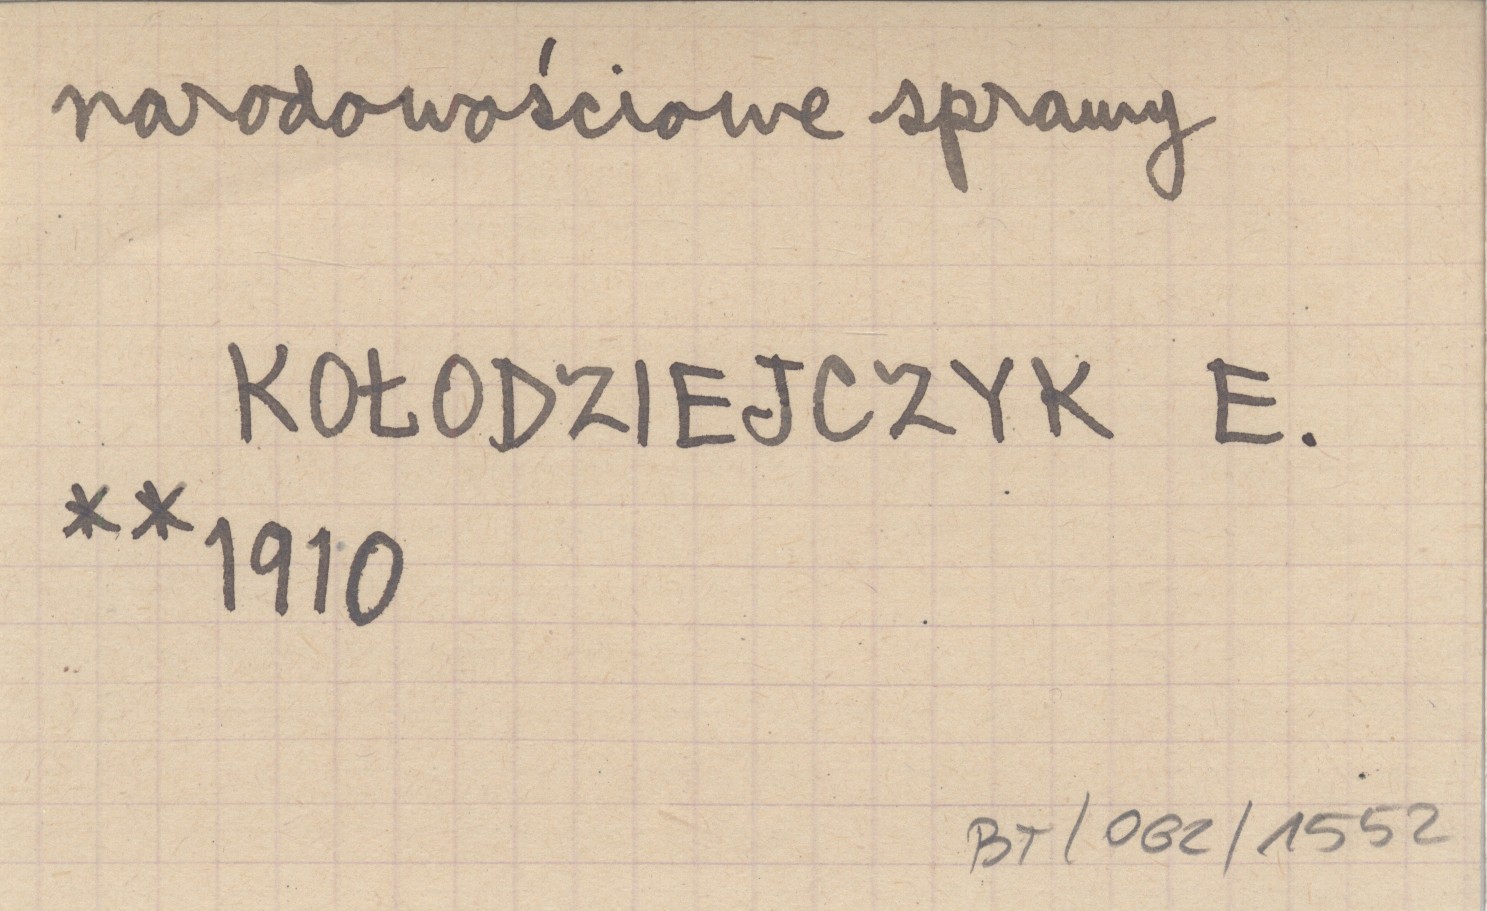 narodowościowe sprawy
KOŁODZIEJCZYK E.
**1910
BT/OBZ/1552